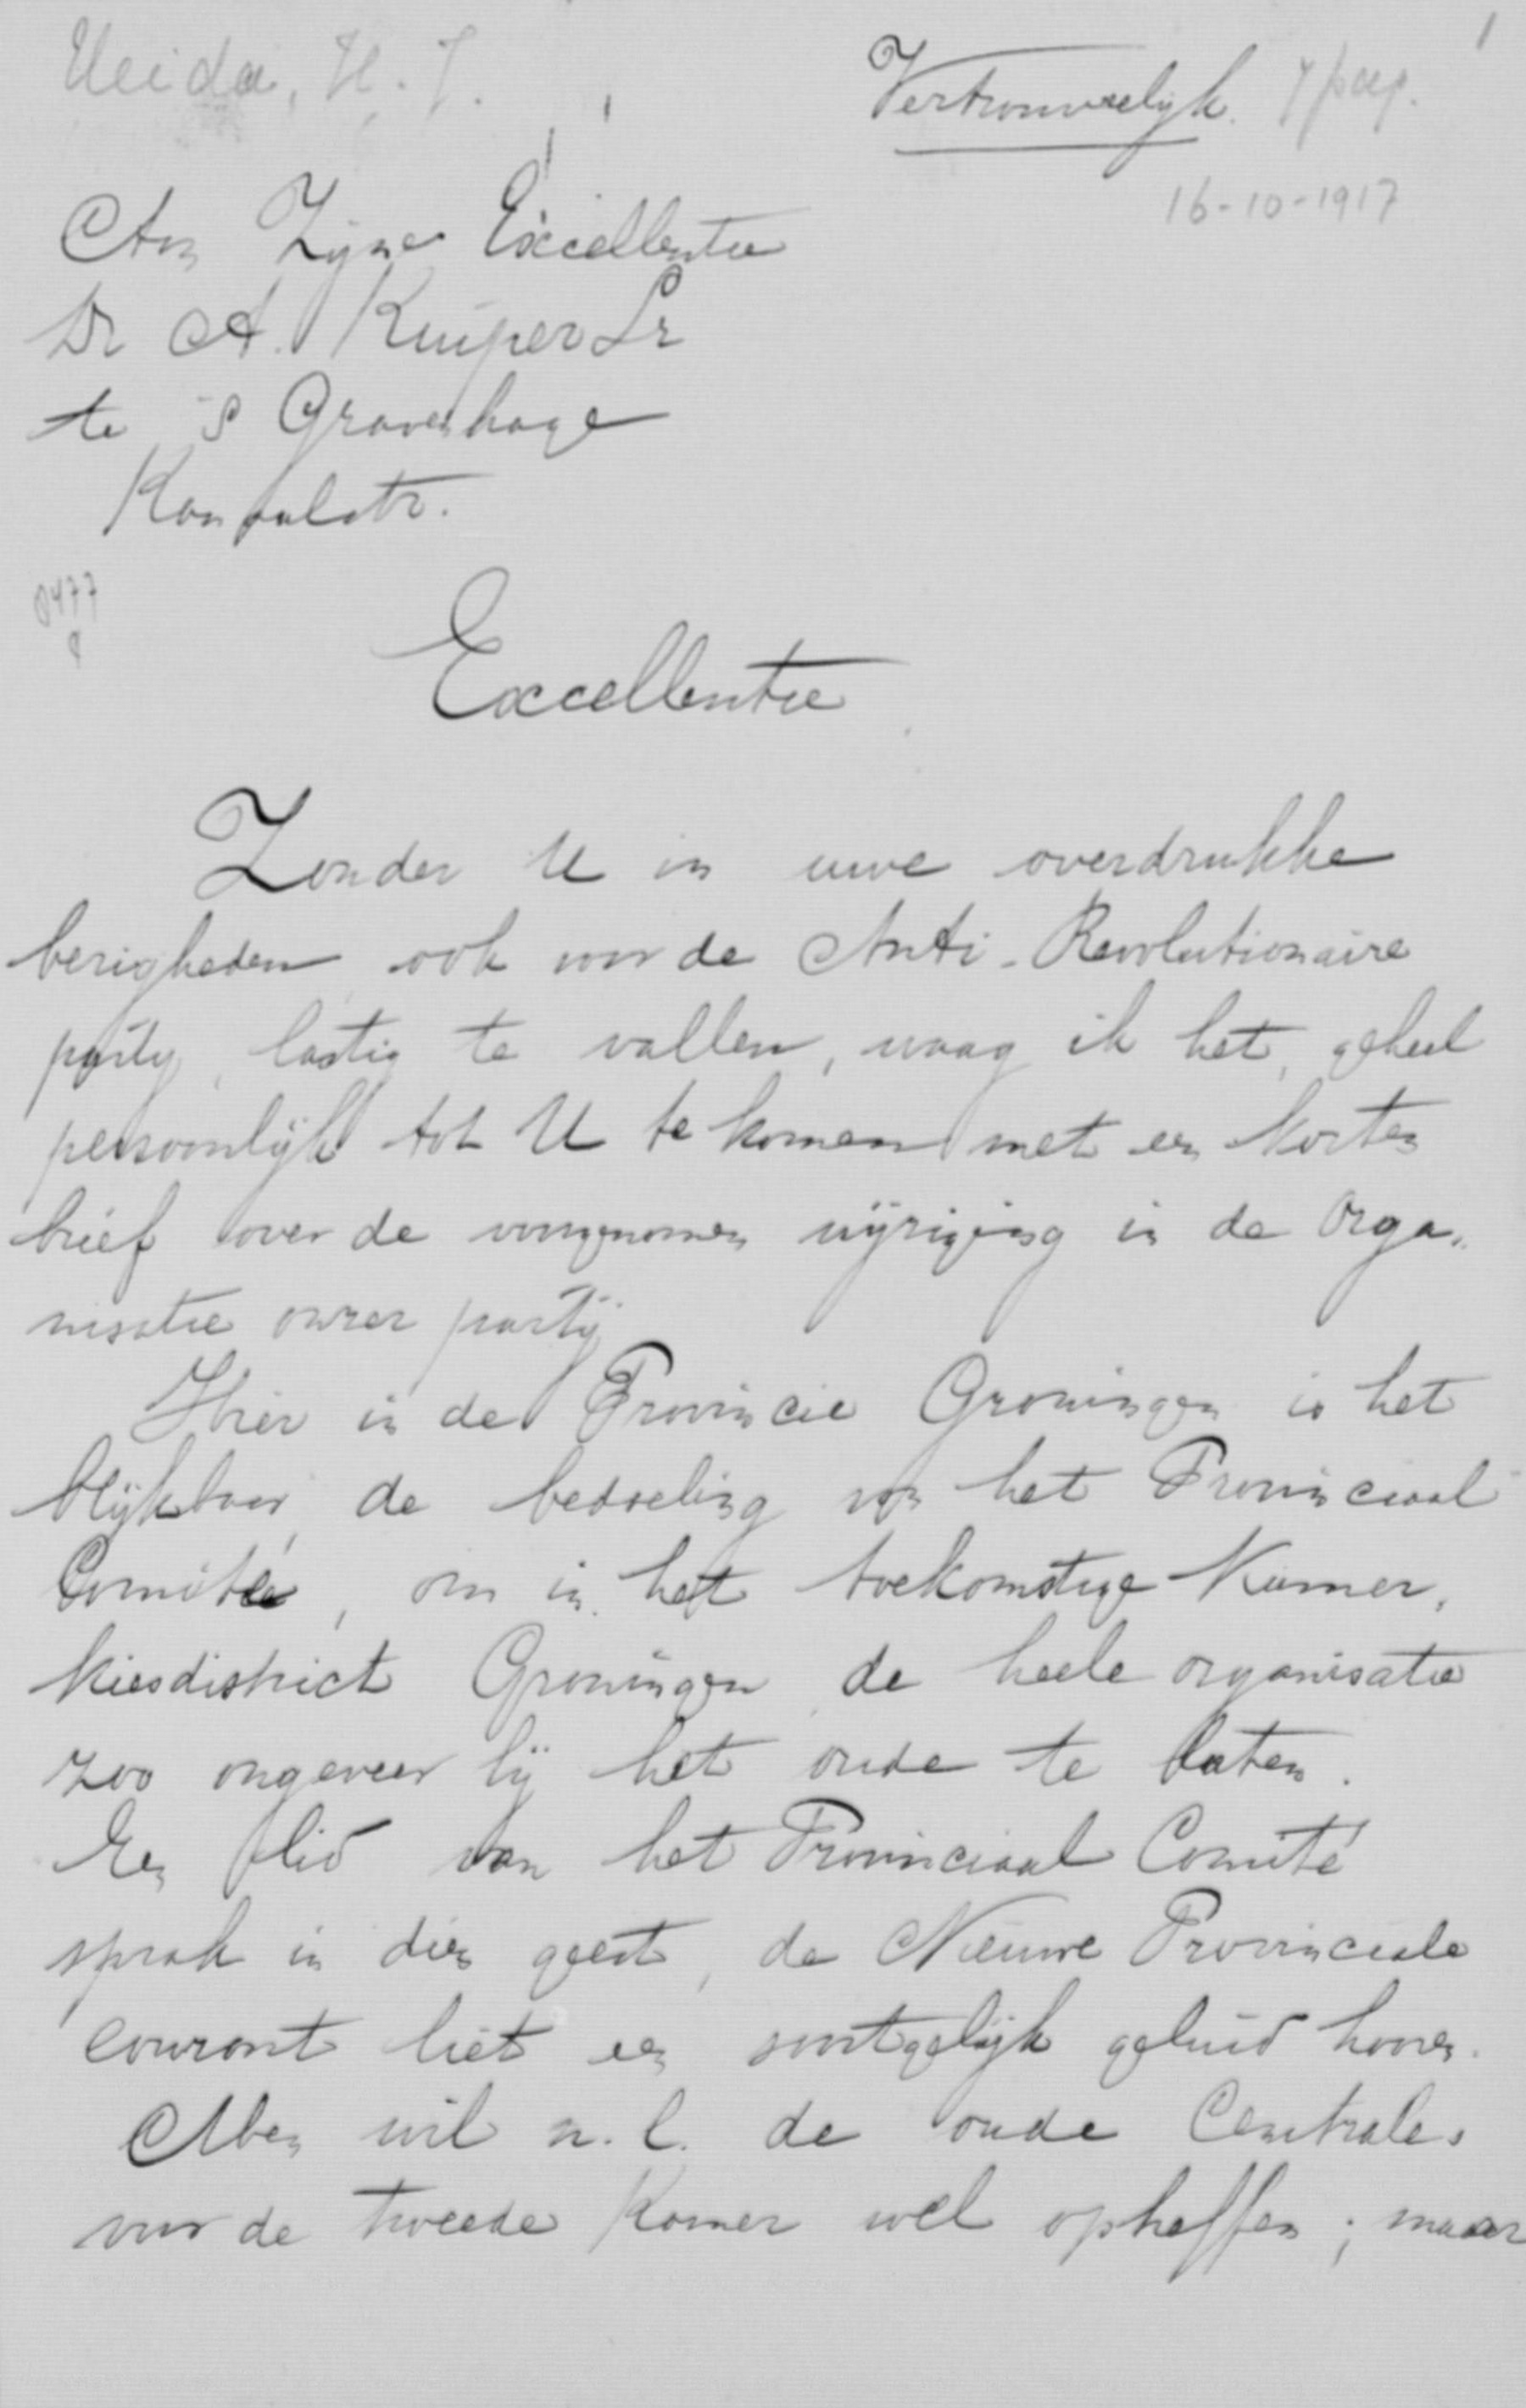 Heida, H. J.
Vertrouwelijk. 7 pag.
1
16-10-1917
Aan Zijne Excellentie
Dr A. Kuijper Sr
te 's Gravenhage
Kanaalstr.
0477
Excellentie
Zonder U in uwe overdrukke
bezigheden ook voor de Anti-Revolutionaire
partij, lastig te vallen, waag ik het, geheel
persoonlijk tot U te komen met een korten
brief over de voorgenomen wijziging in de Orga-
nisatie onzer partij
Hier in de Provincie Groningen is het
blijkbaar de bedoeling van het Provinciaal
Comité, om in het toekomstige Kamer-
kiesdistrict Groningen de heele organisatie
zoo ongeveer bij het oude te laten.
Een lid van het Provinciaal Comité
sprak in dien geest, de Nieuwe Provinciale
courant liet een soortgelijk geluid hooren.
Men wil n.l. de oude Centrales
voor de Tweede Kamer wel opheffen; maar